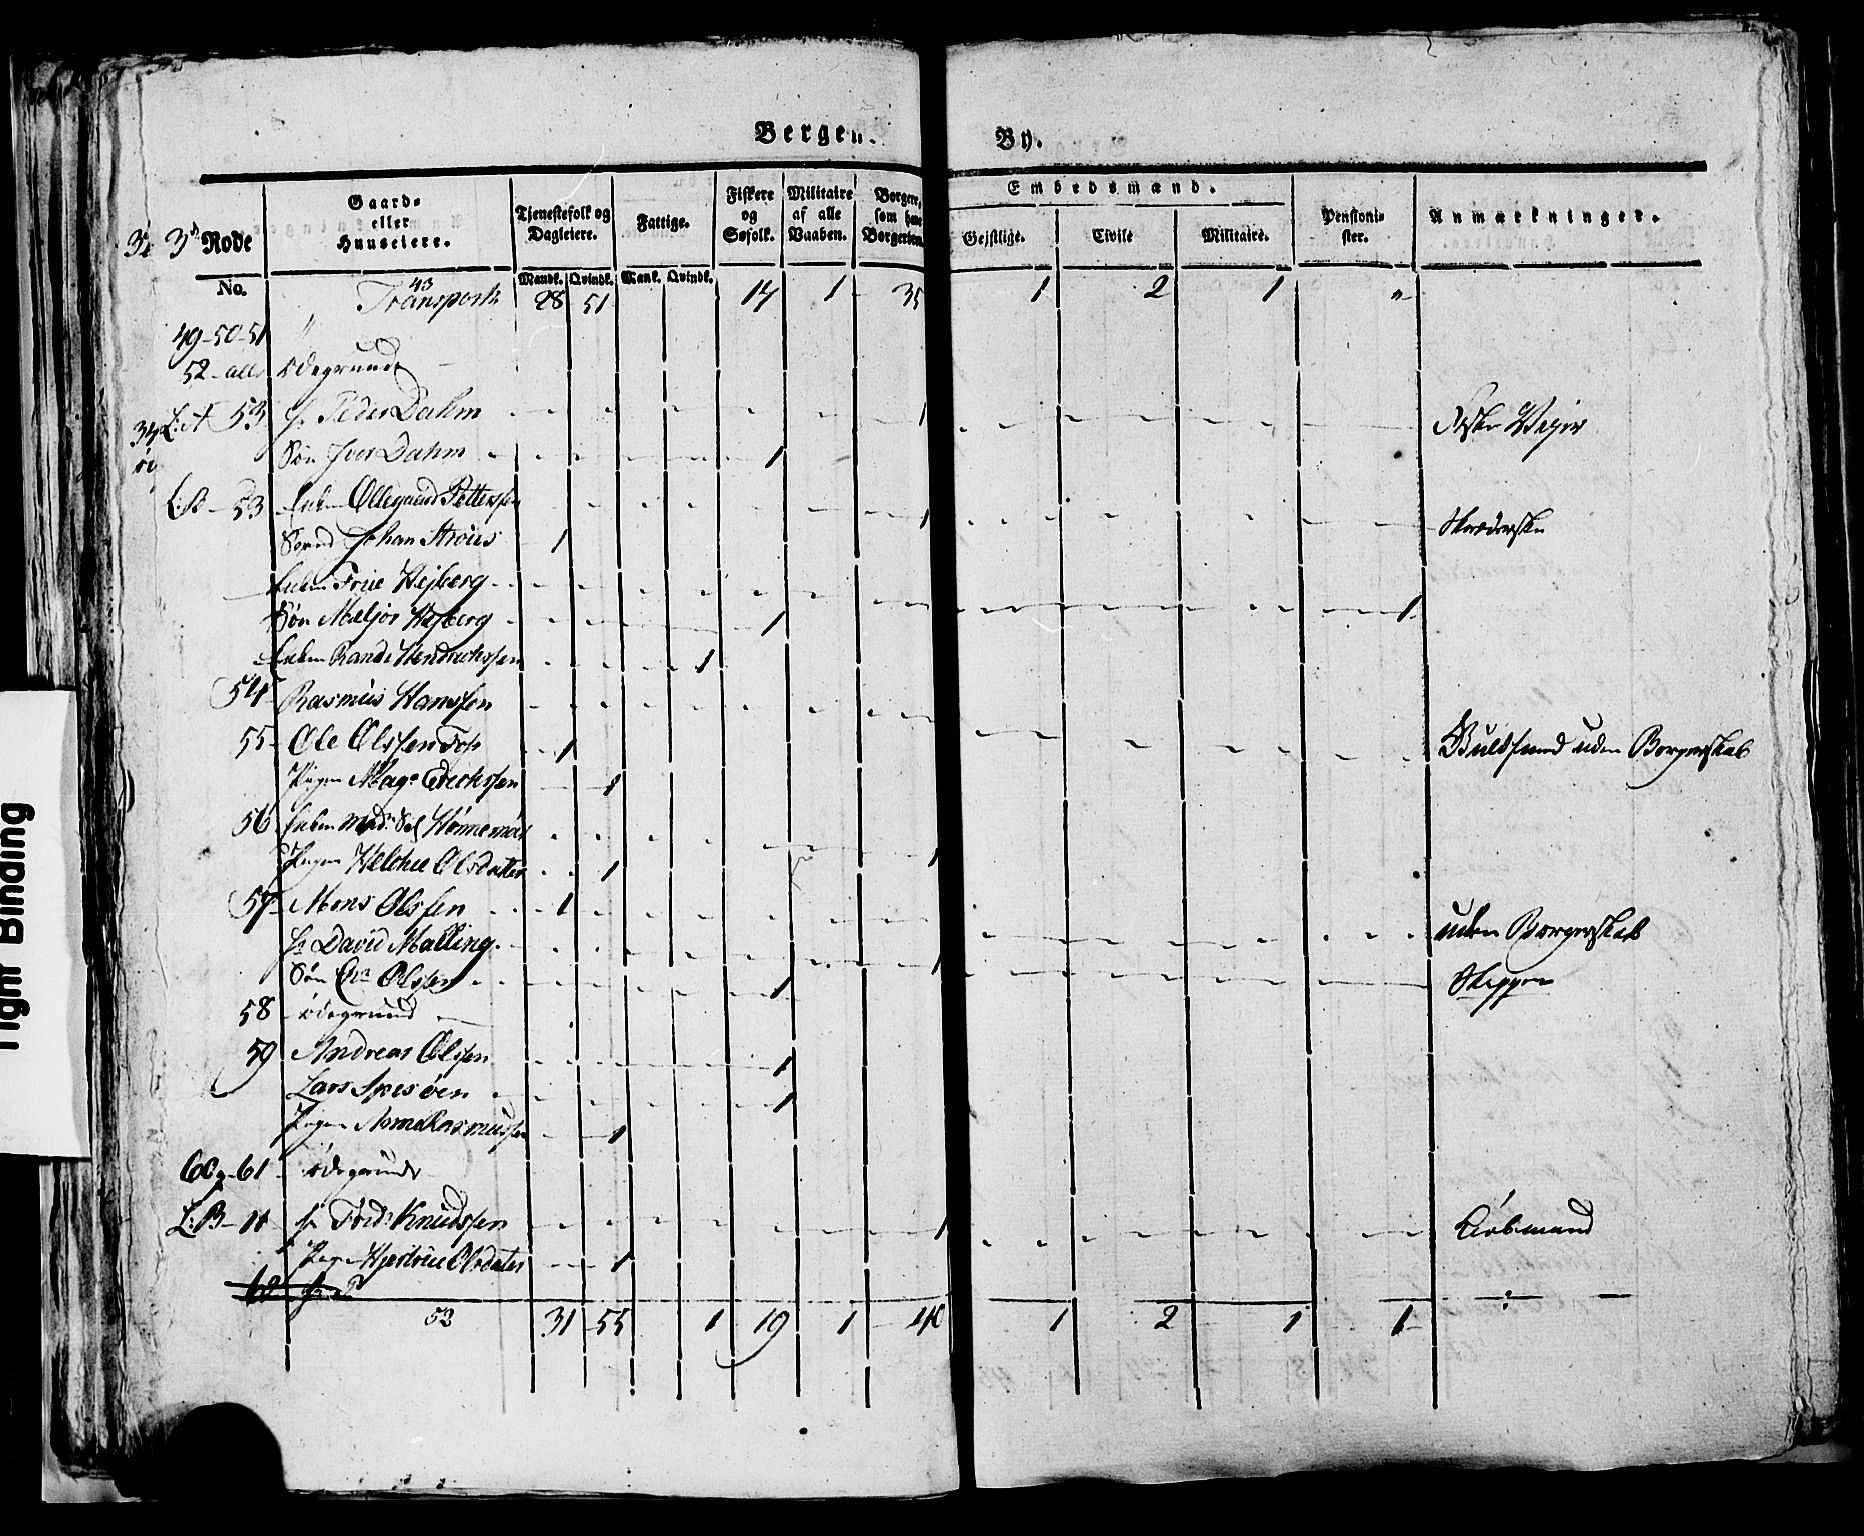 Bergen. By.
3die 3de Rode No.
Gaard- eller Huuseiere.
Tjenestefolk og Dagleiere. Mandk. Qvindk.
Fattige. Mank. Qvindk.
Fiskere og Søfolk.
Militaire af alle Vaaben.
Borgere, som have Borgerien.
Embedsmænd.
Gejstlige. Civile Militaire.
Pensionister.
Anmærkninger.
43
Transport 28 51 14 1 35 1 2 1 "
49-50-51 "
52 alle ødegrunde
L: A 53 hr Peder Dahm 1 Veyer
Søn Iver Dahm 1
L: B - 53 Enken Ollegaard Pettersen 1
Svend Johan Ströus 1
Enken Friie Hejberg 1
Søn Meljor Hejberg 1
Enken Rande Hendrichsen 1
54 Rasmus Hansen
55 Ole Olssen Fos 1 uden Borgerskab
Pigen Mage Erichsen 1
56 Enken Mad: Sl 1
Pigen Olsdatter 1
57 Mons Olssen 1 uden Borgerskab
hr David Malling 1 Skipper
Søn Chr Olssen 1
58 ødegrund
59 Andreas Olssen 1
Lars 1
Pigen Anna Rasmussen 1
60 og 61 ødegrunde
L: B - hr Knudssen 1 Kiöbmand
Pige Olsdatter 1
53 31 55 1 19 1 40 1 2 1 1
Tight Binding